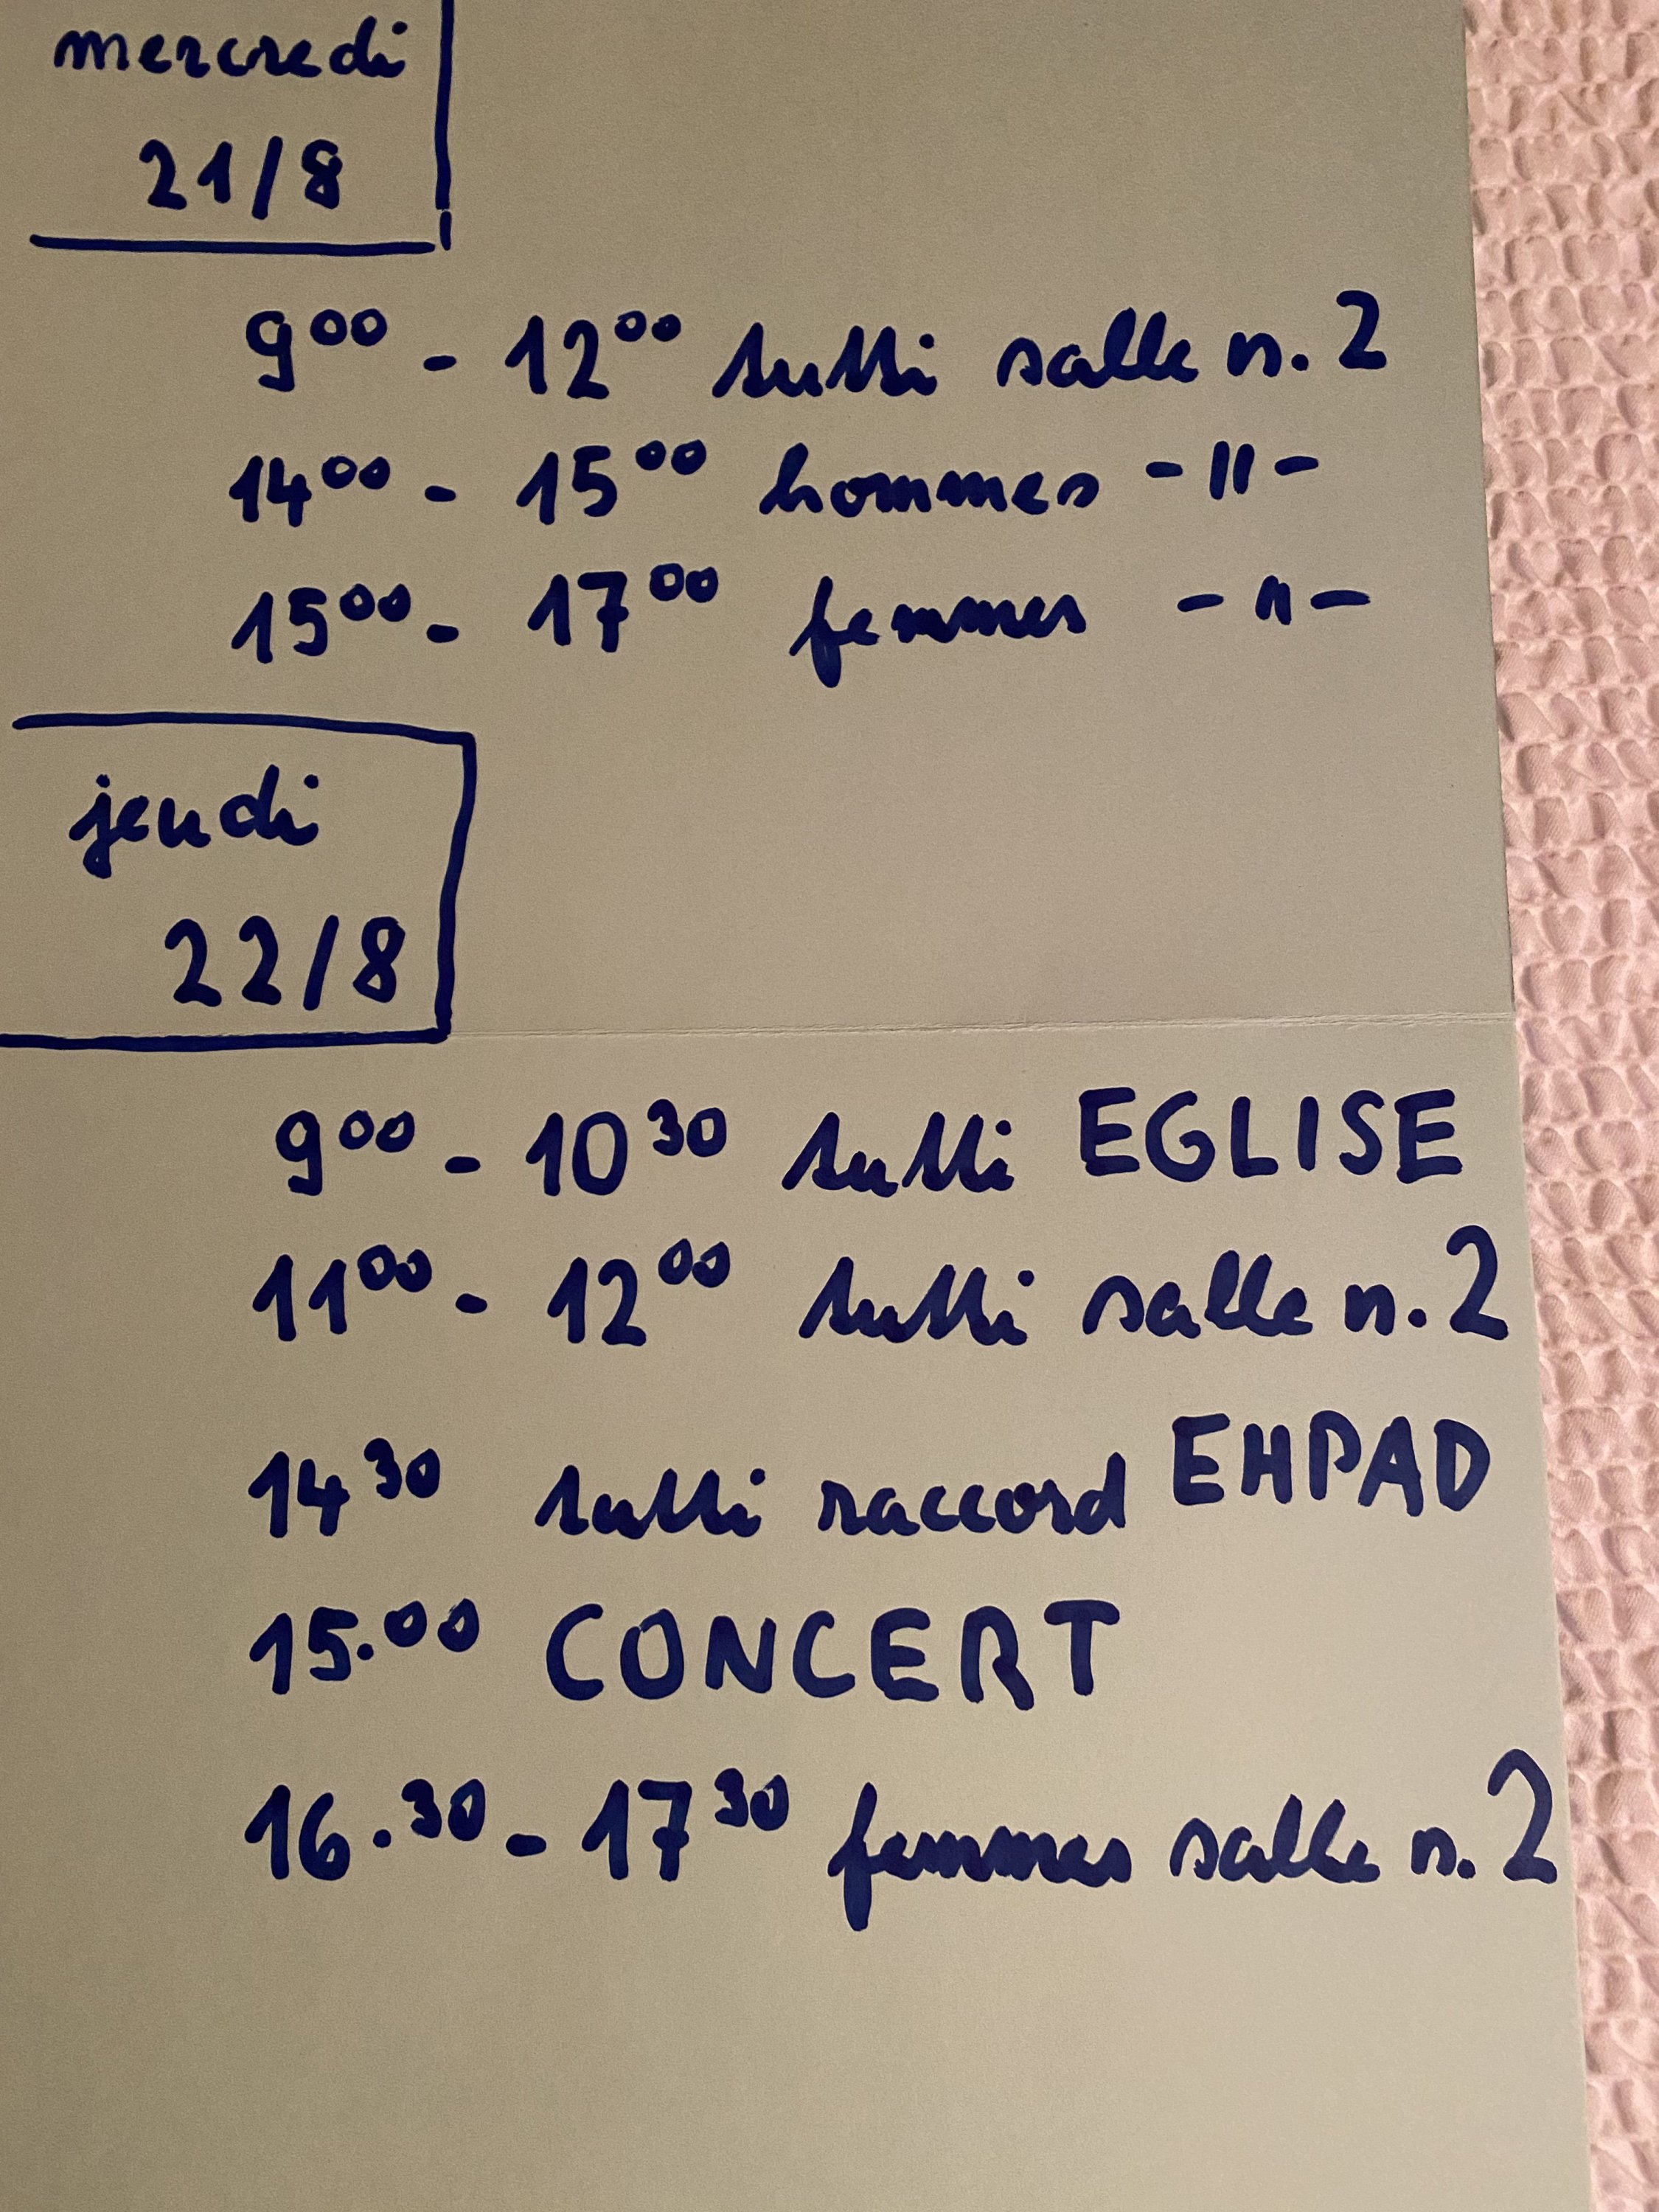 mercredi
21/8
9⁰⁰ - 12⁰⁰ tutti salle n. 2
14⁰⁰ - 15⁰⁰ hommes - 11 -
15⁰⁰ - 17⁰⁰ femmes - 11 -
jeudi
22/8
9⁰⁰ - 10³⁰ tutti EGLISE
11⁰⁰ - 12⁰⁰ tutti salle n. 2
14³⁰ tutti raccord EHPAD
15.⁰⁰ CONCERT
16.³⁰ - 17³⁰ femmes salle n. 2